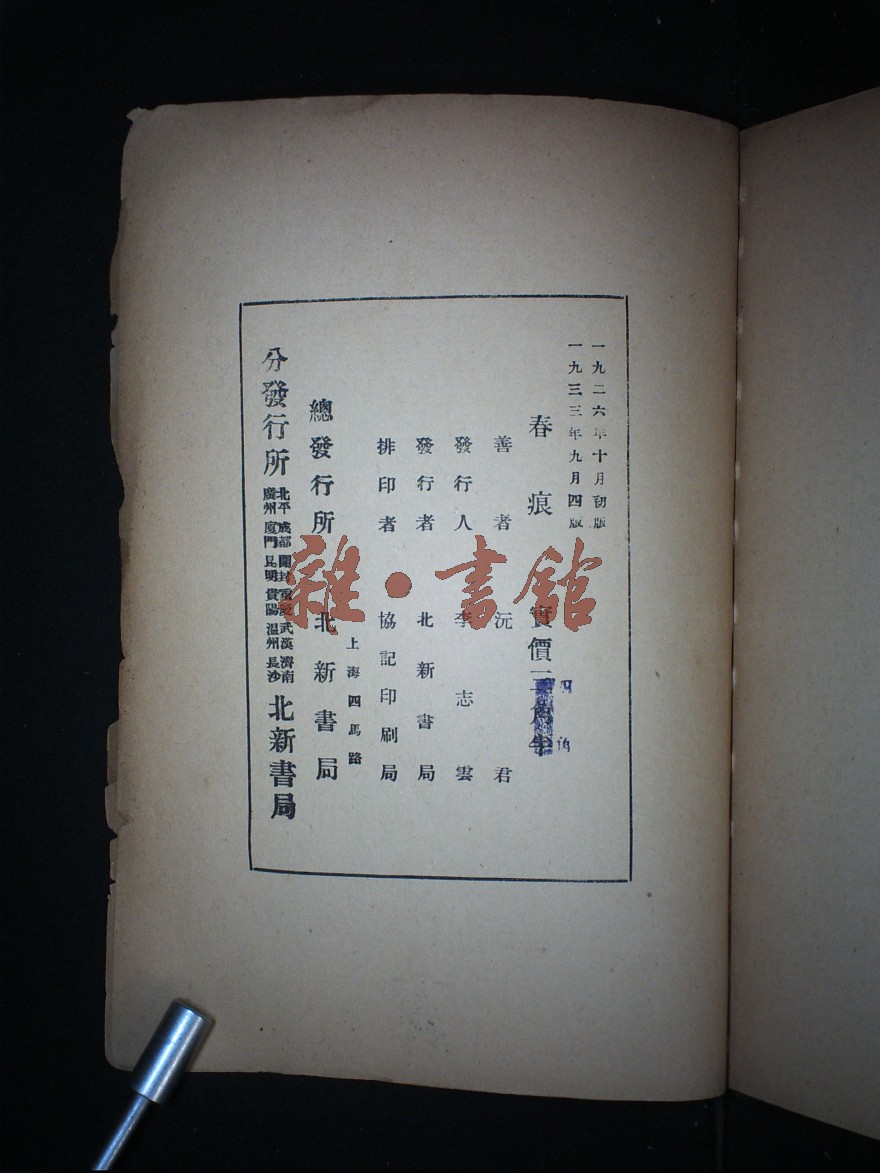 一九二六年十月初版
一九三三年九月四版
春痕 實價三角半
四角
善者 沅君
發行人 李志雲
發行者 北新書局
排印者 協記印刷局
上海四馬路
總發行所 北新書局
分發行所 北平 成都 開封 重慶 武漢 濟南
廣州 廈門 昆明 貴陽 温州 長沙 北新書局
雜·書館